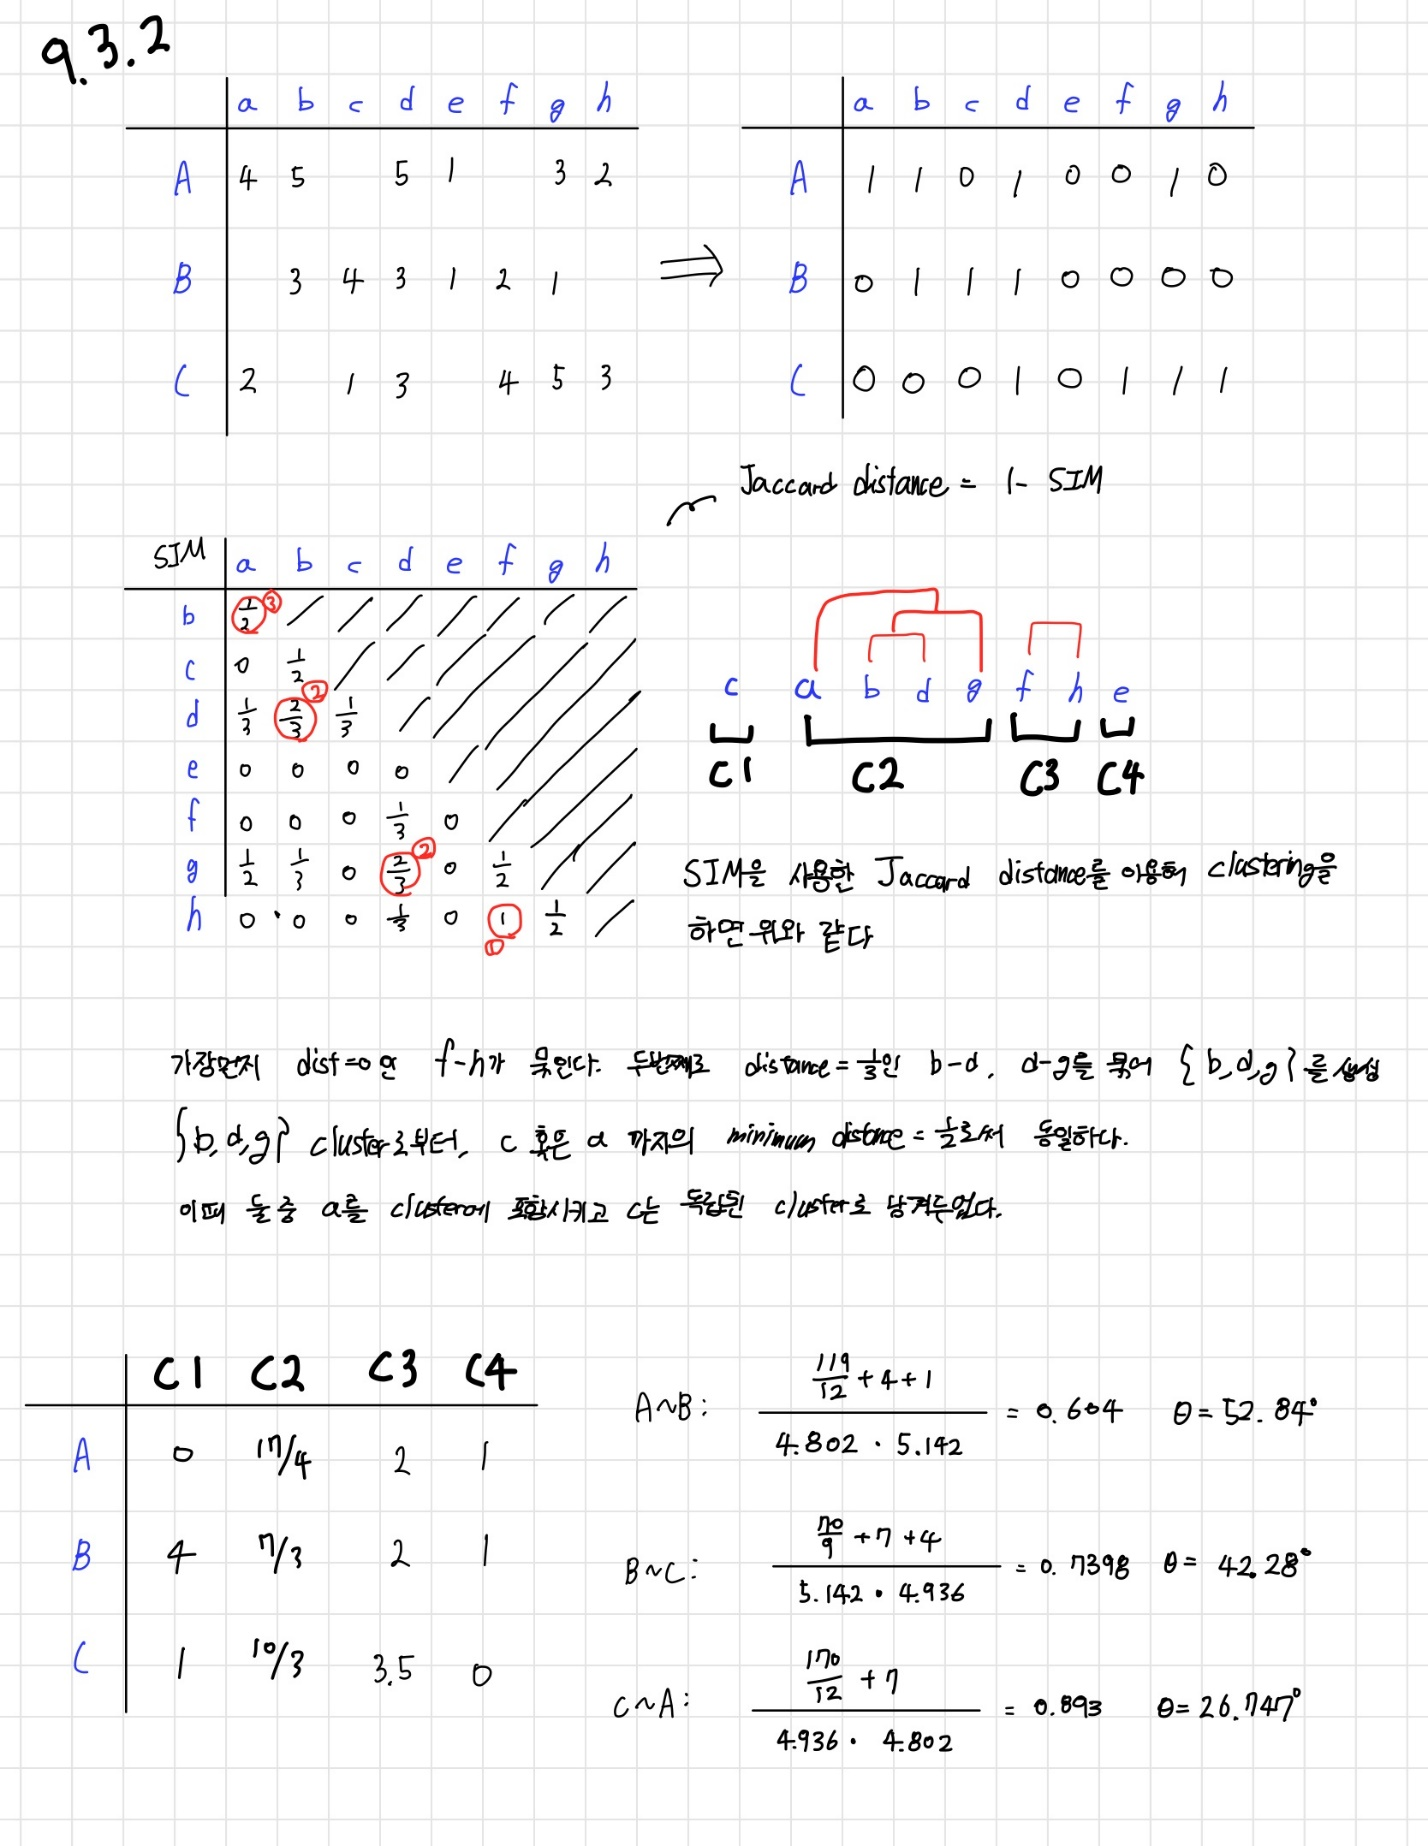 9.3.2
a b c d e f g h
A 4 5 5 1 3 2
B 3 4 3 1 2 1
C 2 1 3 4 5 3
⇒
a b c d e f g h
A 1 1 0 1 0 0 1 0
B 0 1 1 1 0 0 0 0
C 0 0 0 1 0 1 1 1
Jaccard distance = 1- SIM
SIM a b c d e f g h
b 1/2 ③
c 0 1/2
d 1/3 2/3 ② 1/3
e 0 0 0 0
f 0 0 0 1/3 0
g 1/2 1/3 0 2/3 ② 0 1/2
h 0 0 0 1/3 0 1 ① 1/2
c a b d g f h e
C1 C2 C3 C4
SIM을 사용한 Jaccard distance를 이용해 clustering을
하면 위와 같다
가장먼저 dist=0인 f-h가 묶인다. 두번째로 distance=1/3인 b-d, d-g를 묶어 {b,d,g}를 생성
{b,d,g} cluster로부터, c 혹은 a 까지의 minimum distance = 1/2로써 동일하다.
이때 둘 중 a를 cluster에 포함시키고 c는 독립된 cluster로 남겨두었다.
C1 C2 C3 C4
A 0 17/4 2 1
B 4 7/3 2 1
C 1 10/3 3.5 0
A~B: (119/12 + 4 + 1) / (4.802 · 5.142) = 0.604 θ = 52.84°
B~C: (70/9 + 7 + 4) / (5.142 · 4.936) = 0.7398 θ = 42.28°
C~A: (170/12 + 7) / (4.936 · 4.802) = 0.893 θ = 26.747°